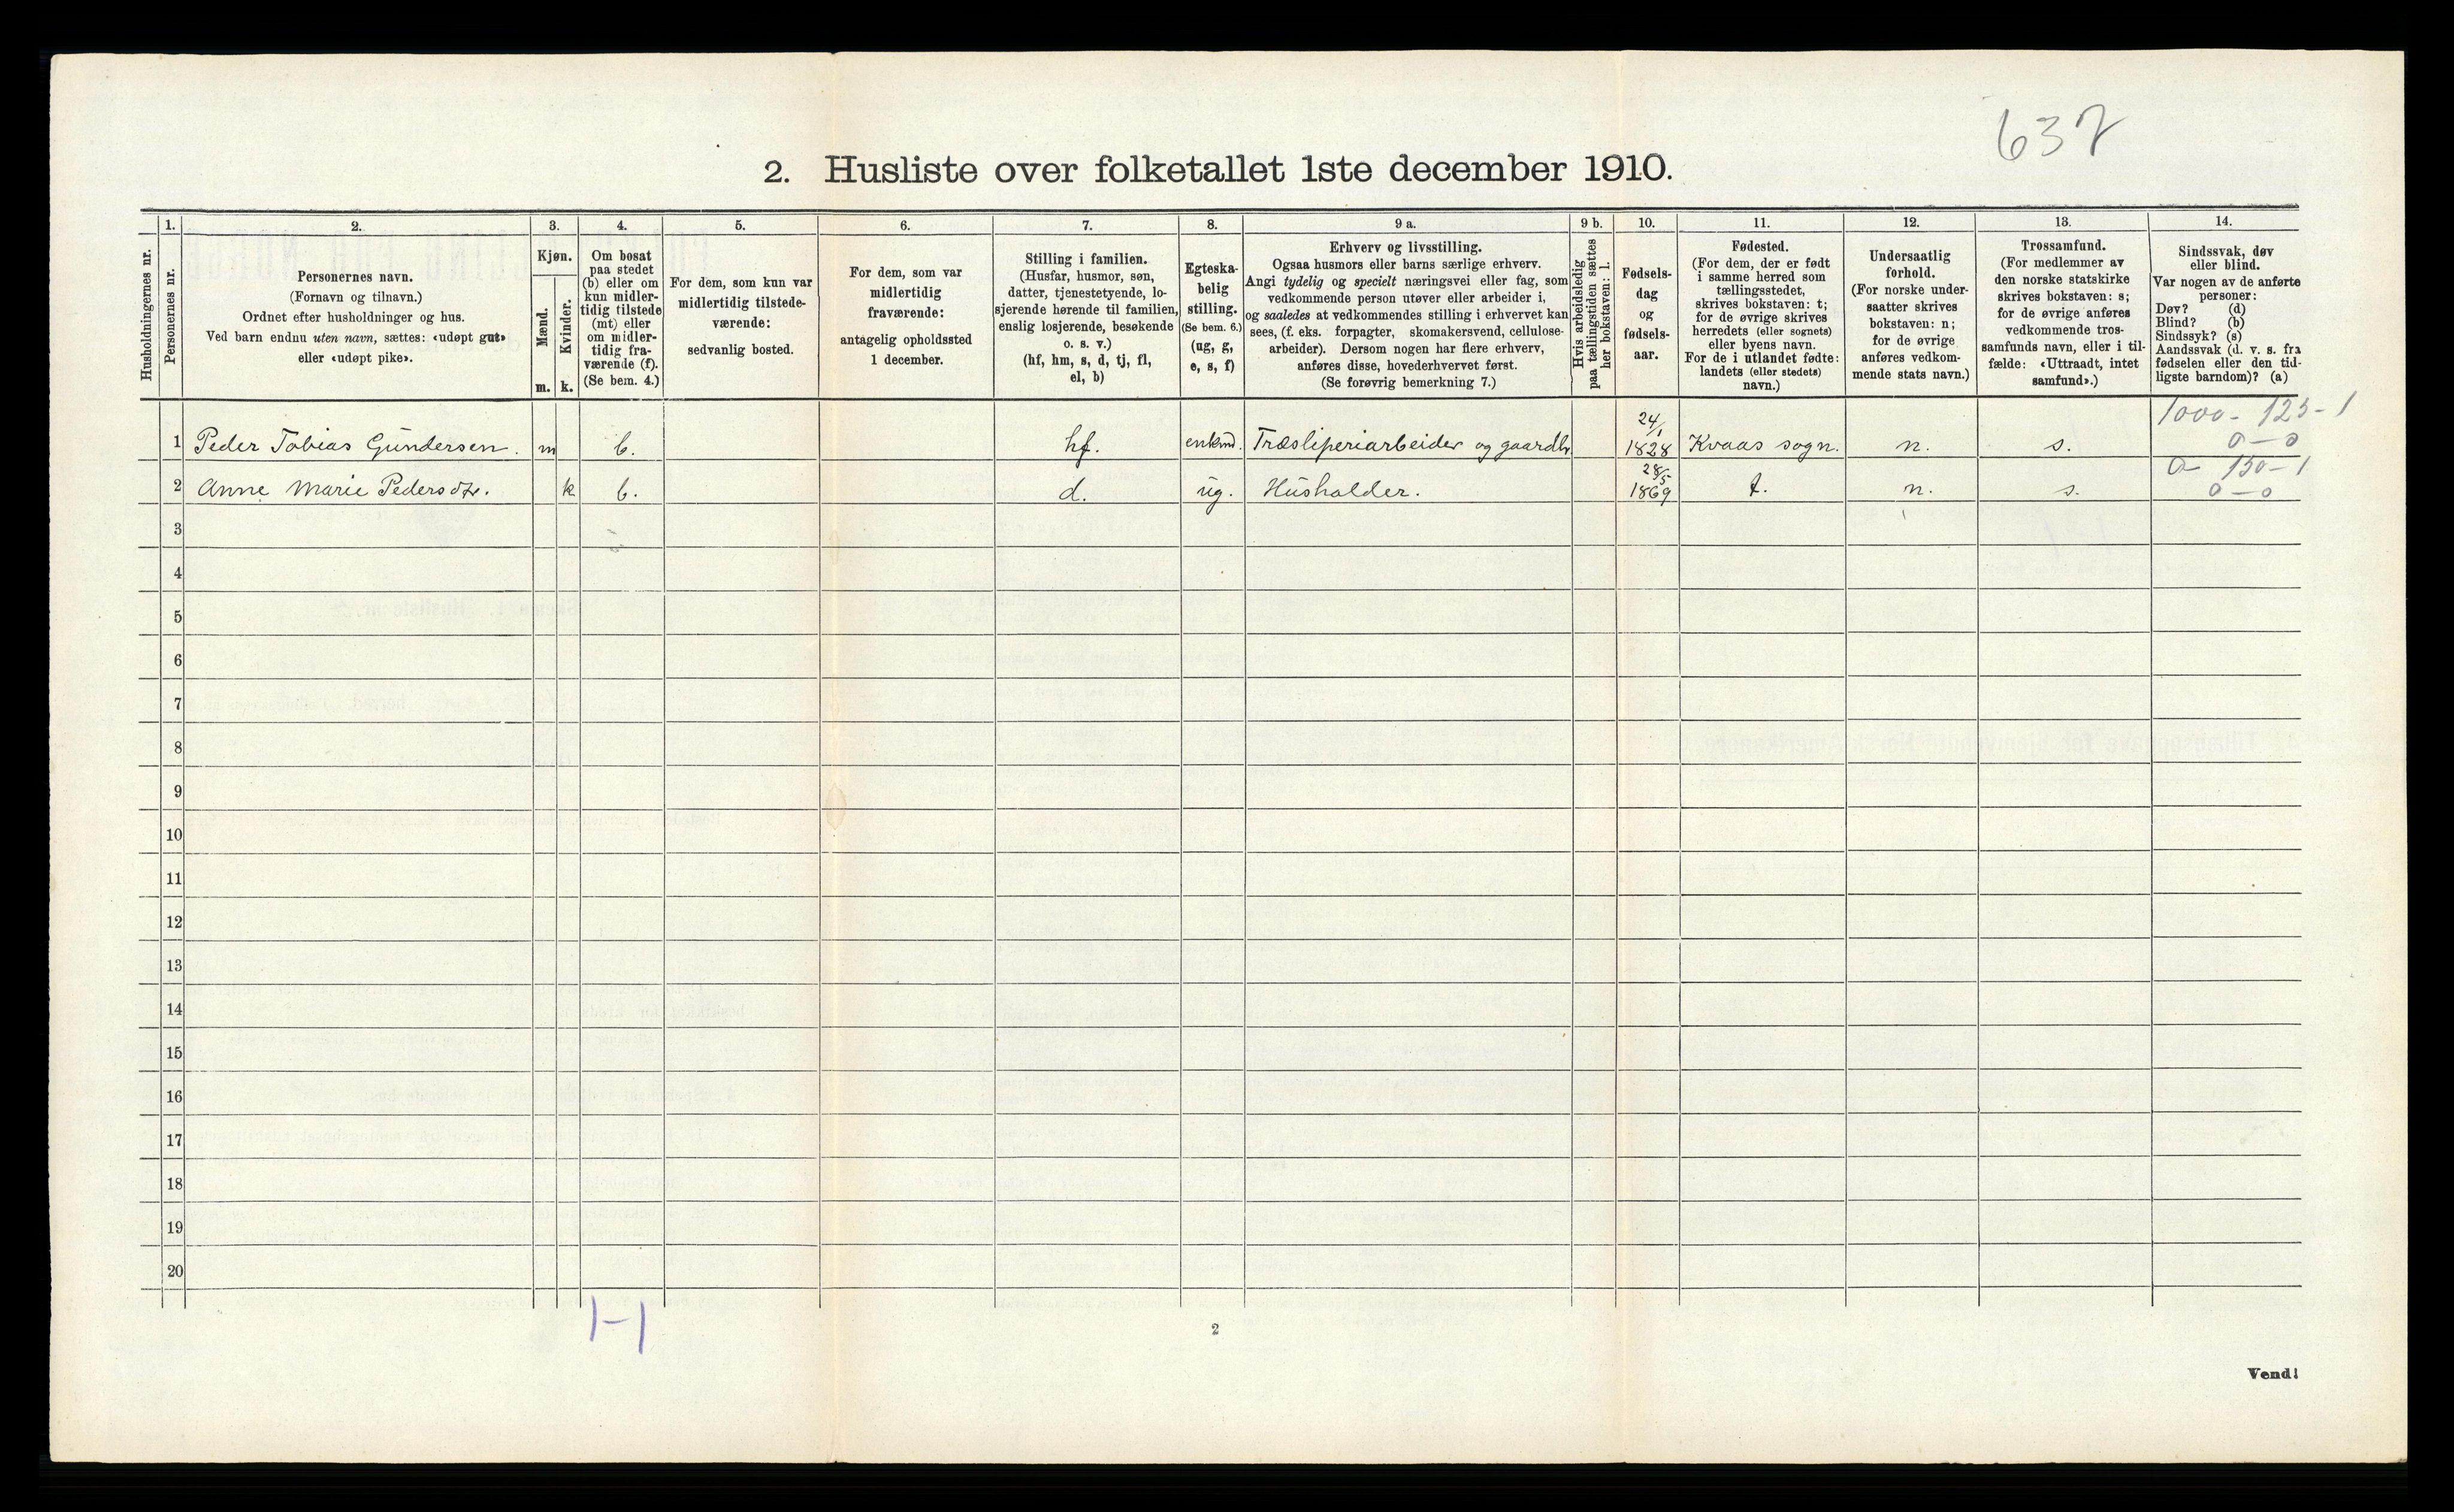 637
2. Husliste over folketallet 1ste december 1910.
Husholdningernes nr.
1.
Personernes nr.
2.
Personernes navn.
(Fornavn og tilnavn.)
Ordnet efter husholdninger og hus.
Ved barn endnu uten navn, sættes: «udøpt gut»
eller «udøpt pike».
3.
Kjøn.
Mænd.
m.
Kvinder.
k.
4.
Om bosat
paa stedet
(b) eller om
kun midler-
tidig tilstede
(mt) eller
om midler-
tidig fra-
værende (f).
(Se bem. 4.)
5.
For dem, som kun var
midlertidig tilstede-
værende:
sedvanlig bosted.
6.
For dem, som var
midlertidig
fraværende:
antagelig opholdssted
1 december.
7.
Stilling i familien.
(Husfar, husmor, søn,
datter, tjenestetyende, lo-
sjerende hørende til familien,
enslig losjerende, besøkende
o. s. v.)
(hf, hm, s, d, tj, fl,
el, b)
8.
Egteska-
belig
stilling.
(Se bem. 6.)
(ug, g,
e, s, f)
9 a.
Erhverv og livsstilling.
Ogsaa husmors eller barns særlige erhverv.
Angi tydelig og specielt næringsvei eller fag, som
vedkommende person utøver eller arbeider i,
og saaledes at vedkommendes stilling i erhvervet kan
sees, (f. eks. forpagter, skomakersvend, cellulose-
arbeider). Dersom nogen har flere erhverv,
anføres disse, hovederhvervet først.
(Se forøvrig bemerkning 7.)
9 b.
Hvis arbeidsledig
paa tællingstiden sættes
her bokstaven: l.
10.
Fødsels-
dag
og
fødsels-
aar.
11.
Fødested.
(For dem, der er født
i samme herred som
tællingsstedet,
skrives bokstaven: t;
for de øvrige skrives
herredets (eller sognets)
eller byens navn.
For de i utlandet fødte:
landets (eller stedets)
navn.)
12.
Undersaatlig
forhold.
(For norske under-
saatter skrives
bokstaven: n;
for de øvrige
anføres vedkom-
mende stats navn.)
13.
Trossamfund.
(For medlemmer av
den norske statskirke
skrives bokstaven: s;
for de øvrige anføres
vedkommende tros-
samfunds navn, eller i til-
fælde: «Uttraadt, intet
samfund».)
14.
Sindssvak, døv
eller blind.
Var nogen av de anførte
personer:
Døv? (d)
Blind? (b)
Sindssyk? (s)
Aandssvak (d. v. s. fra
fødselen eller den tid-
ligste barndom)? (a)
1000- 125-1
0-0
1 Peder Tobias Gundersen. m b. hf. enkmd. Træsliperiarbeider og gaardbr. 24/1 1828 Kvaas sogn. n. s.
0- 150-1
0-0
2 Anne Marie Pedersdtr. k b. d. ug. Husholder. 28/5 1869 t. n. s.
3
4
5
6
7
8
9
10
11
12
13
14
15
16
17
18
19
20
1-1
2
Vend!